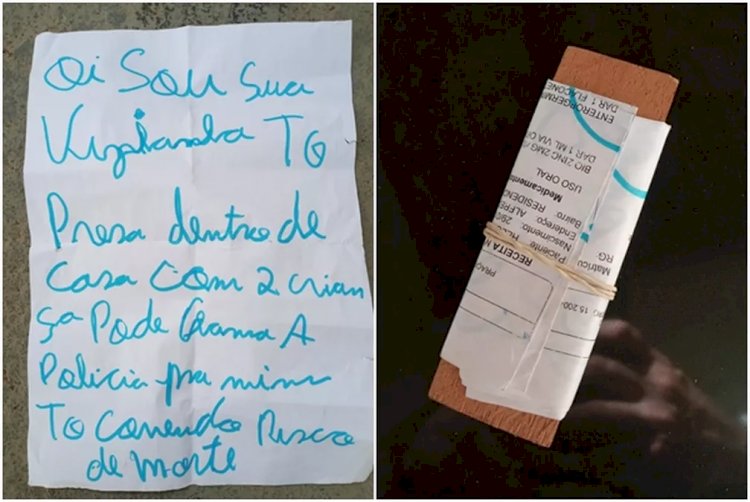 Oi Sou Sua
Vizianha TO
Presa dentro de
Casa Com 2 crian
ça Pode Chama A
Policia pra mim
To Correndo Risco
de morte
ENTEROGERM
DAR 1 FLACONE
BIO ZINC 2MG
DAR 1 ML VIA O
USO ORAL
Medicamento
RESIDEN
Bairro:
Endereço: ALFRE
Nascimento: 29
Paciente
RECEITA N
PRAC
Matricu
RG-
15.200